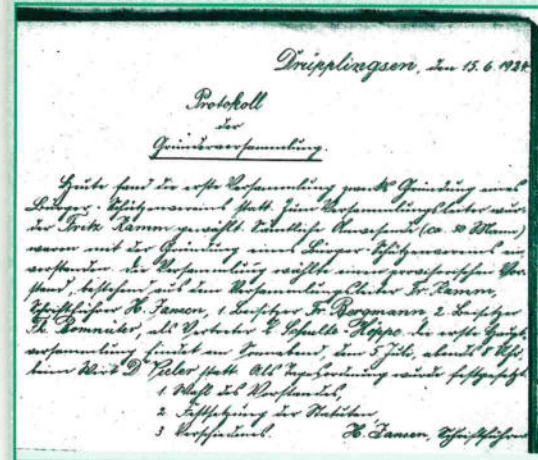 Drüpplingsen, den 15.6.1924
Protokoll
der
Gründerversammlung.
Heute fand die erste Versammlung zwecks Gründung eines
Bürger-Schützenvereins statt. Zum Versammlungsleiter wur-
de Fritz Kamm gewählt. Sämtliche Anwesende (ca. 50 Mann)
waren mit der Gründung eines Bürger-Schützenvereins ein-
verstanden. Die Versammlung wählte einen provisorischen Vor-
stand, bestehend aus dem Versammlungsleiter Fr. Kamm,
Schriftführer H. Jansen, 1. Beisitzer Fr. Bergmann, 2. Beisitzer
als Vertreter Schulte-Hoppe. Die erste Haupt-
versammlung findet am Sonnabend, den 5. Juli, abends 8 Uhr,
beim Wirt D. statt. Als Tagesordnung wurde festgesetzt
1. Wahl des Vorstandes,
2. Festsetzung der Statuten,
3. Verschiedenes. H. Jansen, Schriftführer